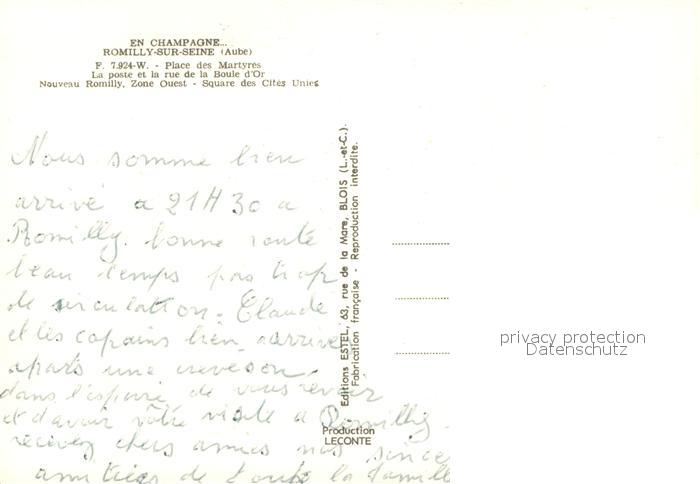 EN CHAMPAGNE...
ROMILLY-SUR-SEINE (Aube)
F. 7.924-W. - Place des Martyres
La poste et la rue de la Boule d'Or
Nouveau Romilly, Zone Ouest - Square des Cités Unies
Nous somme bien
arrivé a 21H30 a
Romilly. bonne route
beau temps pas trop
de circulation. Claude
et les copains bien arrivé
aparts une creveson
dans l'espoire de vous revoir
et d'avoir vôtre visite a Romilly.
recevez chers amies nos sincè
amitiées de toute la famille
Editions ESTEL, 63, rue de la Mare, BLOIS (L.-et-C.).
Fabrication française - Reproduction interdite.
Production
LECONTE
privacy protection
Datenschutz